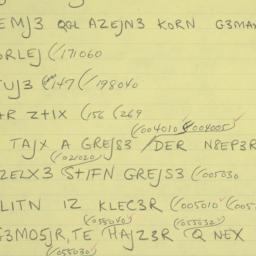 EMJ3 QGL AZEJN3 KORN G3MA
ORLEJ (✓171060
TUJ3 (✓147 (✓198040
+R Z+IX (156 (269
(✓004010 (✓004005
TAJX A GREJS3 / DER N8EP3R
(✓021020
ZELX3 S+IFN GREJS3 (✓005030
LITN IZ KLEC3R (✓005010 (✓005
(✓055040 (✓055032
G3MO5JR,TE HAJZ3R Q NEX
(✓055030